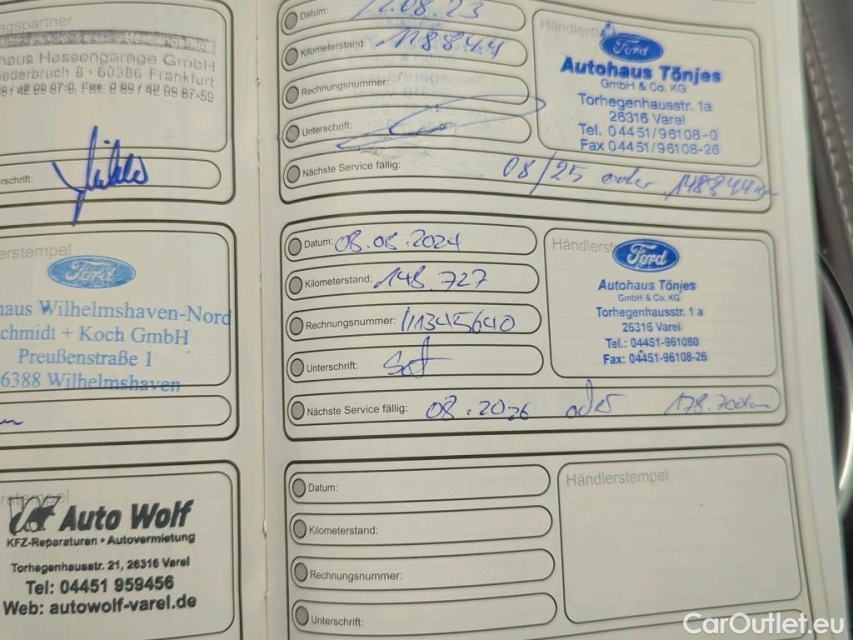 gspartner
haus Hessengarage GmbH
ederbruch 8 · 60386 Frankfurt
schrift:
erstempel
Ford
haus Wilhelmshaven-Nord
chmidt + Koch GmbH
Preußenstraße 1
6388 Wilhelmshaven
Auto Wolf
KFZ-Reparaturen • Autovermietung
Torhegenhausstr. 21, 26316 Varel
Tel: 04451 959456
Web: autowolf-varel.de
Datum: 08.23
Kilometerstand: 118844
Rechnungsnummer:
Unterschrift:
Nächste Service fällig: 08/25 oder 148844
Händlerst
Ford
Autohaus Tönjes
GmbH & Co. KG
Torhegenhausstr. 1a
26316 Varel
Tel. 04451/96108-0
Fax 04451/96108-26
Datum: 08.08.2024
Kilometerstand: 148 727
Rechnungsnummer: 11345640
Unterschrift:
Nächste Service fällig: 08.2026 oder 178.700km
Händlerst
Ford
Autohaus Tönjes
GmbH & Co. KG
Torhegenhausstr. 1 a
26316 Varel
Tel.: 04451-961080
Fax: 04451-96108-26
Datum:
Kilometerstand:
Rechnungsnummer:
Unterschrift:
Händlerstempel
CarOutlet.eu